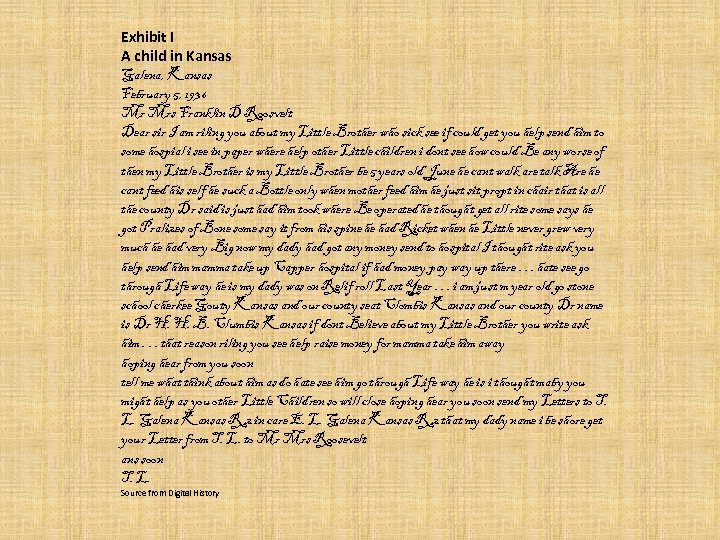 Exhibit I
A child in Kansas
Galena, Kansas
February 5, 1936
Mr Mrs Franklin D Roosvelt
Dear sir I am riting you about my Little Brother who sick see if could get you help send him to
some hospial i see in paper where help other Little children i dont see how could Be any worse of
then my Little Brother is my Little Brother be 5 years old June he cant walk are talk Are he
cant feed his self he suck a Bottle only when mother feed him he just sit propt in chair that is all
the county Dr said is just had him took where Be operated he thought get all rite some says he
got Pralizes of Bone some say it from his spine he had Ricket when he Little never grew very
much he had very Big now my dady had got any money send to hospital I thought rite ask you
help send him mamma take up Capper hospital if had money pay way up there . . . hate see go
through Life way he is my dady was on Relif roll Last Year . . . i am just m year old go stone
school cherkee Gouty Kansas and our county seat Clombis Kansas and our county Dr name
is Dr H. H. B. Clumbis Kansas if dont Believe about my Little Brother you write ask
him . . . that reason riling you see help raise money for mamma take him away
hoping hear from you soon
tell me what think about him as do hate see him go through Life way he is i thought maby you
might help as you other Little Children so will close hoping hear you soon send my Letters to J.
L. Galena Kansas R2 in care E. L. Galena Kansas R2 that my dady name i be shore get
your Letter from J. L. to Mr Mrs Roosevelt
ans soon
J. L.
Source from Digital History